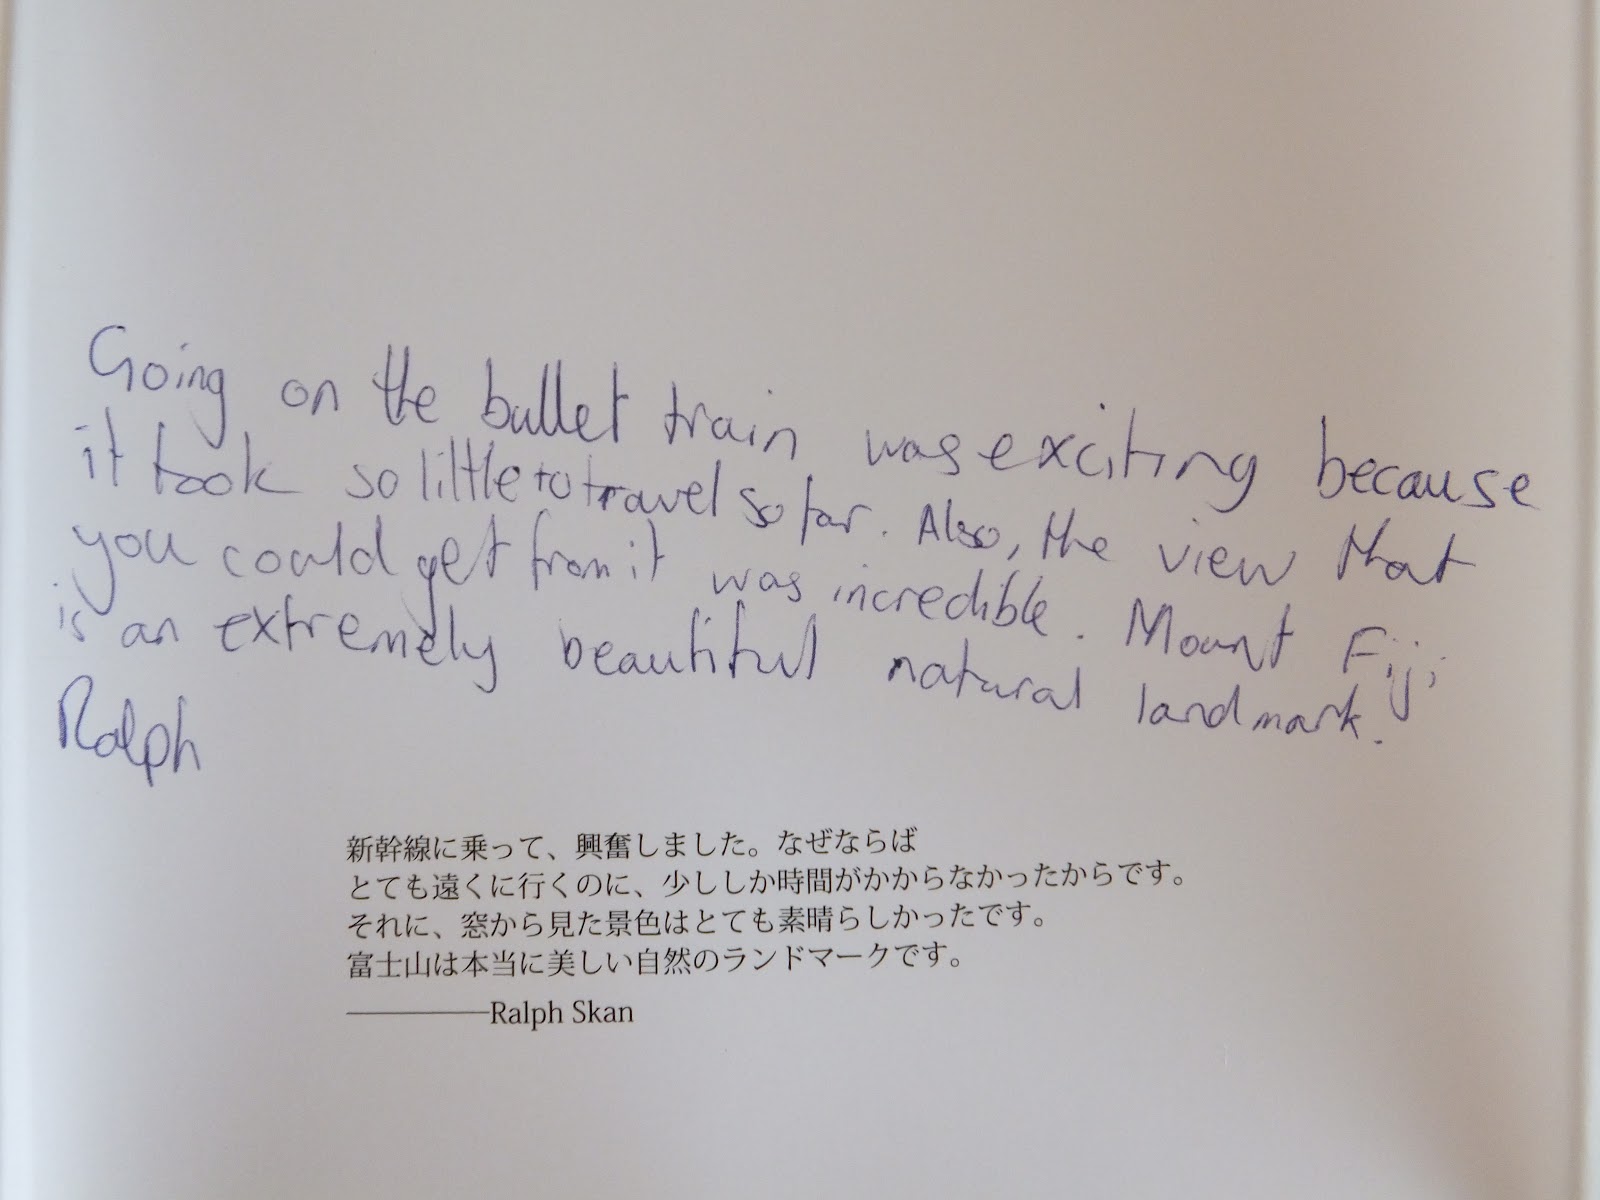 Going on the bullet train was exciting because
it took so little to travel so far. Also, the view that
you could get from it was incredible. Mount Fiji
is an extremely beautiful natural landmark.
Ralph
新幹線に乗って、興奮しました。なぜならば
とても遠くに行くのに、少ししか時間がかからなかったからです。
それに、窓から見た景色はとても素晴らしかったです。
富士山は本当に美しい自然のランドマークです。
―――――Ralph Skan